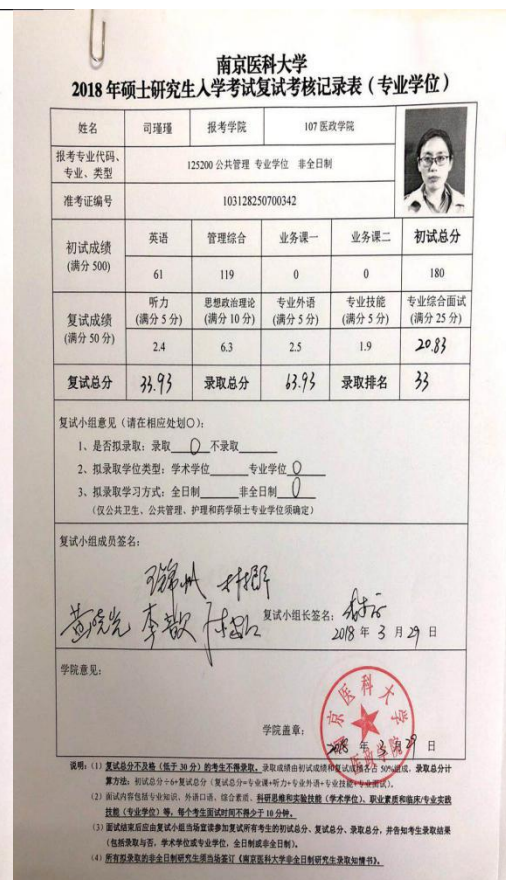 南京医科大学
2018 年硕士研究生入学考试复试考核记录表（专业学位）
姓名 司瑾瑾 报考学院 107 医政学院
报考专业代码、专业、类型 125200 公共管理 专业学位 非全日制
准考证编号 103128250700342
初试成绩 (满分 500) 英语 管理综合 业务课一 业务课二 初试总分
61 119 0 0 180
复试成绩 (满分 50 分) 听力 (满分 5 分) 思想政治理论 (满分 10 分) 专业外语 (满分 5 分) 专业技能 (满分 5 分) 专业综合面试 (满分 25 分)
2.4 6.3 2.5 1.9 20.83
复试总分 33.93 录取总分 63.93 录取排名 33
复试小组意见（请在相应处划〇）：
1、是否拟录取：录取 〇 不录取
2、拟录取学位类型：学术学位 专业学位 〇
3、拟录取学习方式：全日制 非全日制 〇
（仅公共卫生、公共管理、护理和药学硕士专业学位须确定）
复试小组成员签名：
黄晓光 李歆
复试小组长签名：
2018 年 3 月 29 日
学院意见：
学院盖章：
南京医科大学
医政学院
2018 年 3 月 29 日
说明：（1）复试总分不及格（低于 30 分）的考生不得录取。录取成绩由初试成绩和复试成绩各占 50%组成，录取总分计
算方法：初试总分÷6+复试总分（复试总分=专业课+听力+专业外语+专业技能+专业面试）。
（2）面试内容包括专业知识、外语口语、综合素质、科研思维和实验技能（学术学位）、职业素质和临床/专业实践
技能（专业学位）等，每个考生面试时间不得少于 10 分钟。
（3）面试结束后应由复试小组当场宣读参加复试所有考生的初试总分、复试总分、录取总分，并告知考生录取结果
（包括录取与否，学术学位或专业学位，全日制或非全日制）。
（4）所有拟录取的非全日制研究生须当场签订《南京医科大学非全日制研究生录取知情书》。